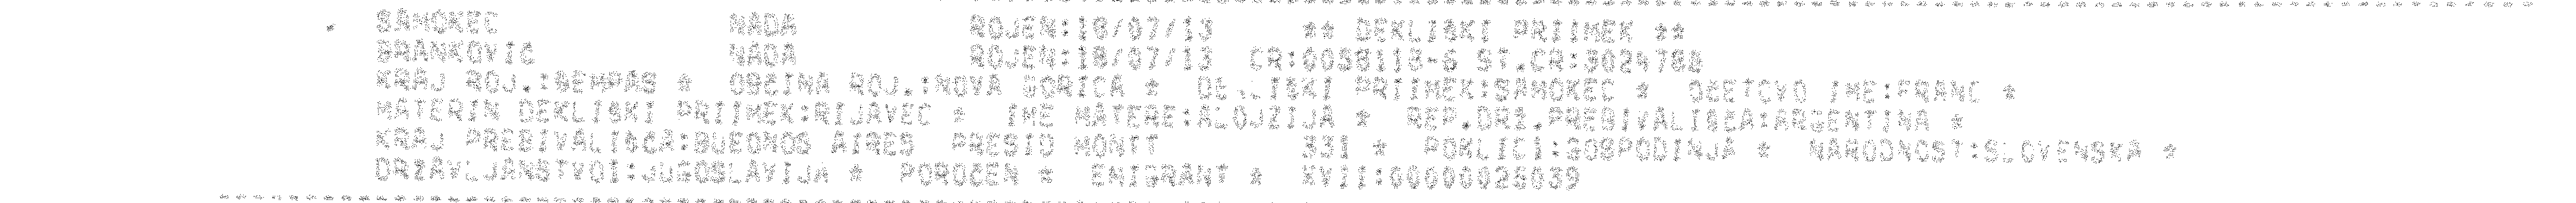 SAMOKEC NADA ROJEN:18/07/13 ** DEKLISKI PRIIMEK **
BRANKOVIC NADA ROJEN:18/07/13 CR:0058113-6 ST.CR:3024788
KRAJ ROJ.:SEMPAS * OBCINA ROJ.:NOVA GORICA * DEKLISKI PRIIMEK:SAMOKEC * OCETOVO IME:FRANC *
MATERIN DEKLISKI PRIIMEK:RIJAVEC * IME MATERE:ALOJZIJA * REP.DRZ.PREBIVALISCA:ARGENTINA *
KRAJ PREBIVALISCA:BUEONOS AIRES PRESIO MONTT 331 * POKLICI:GOSPODINJA * NARODNOST:SLOVENSKA *
DRZAVLJANSTVOI:JUGOSLAVIJA * POROCEN * EMIGRANT * XVII:00000026039